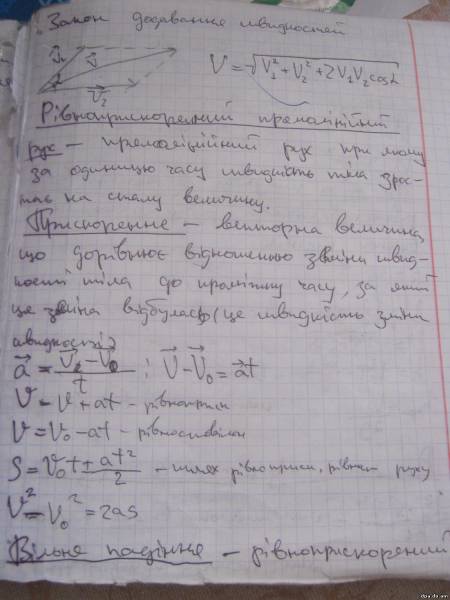 Закон додавання швидкостей
V₁ V V₂ α
V = √V₁² + V₂² + 2V₁V₂ cosα
Рівноприскорений прямолінійний
рух – прямолінійний рух при якому
за одиницю часу швидкість тіла зрос-
тає на сталу величину.
Прискорення – векторна величина,
що дорівнює відношенню зміни швид-
кості тіла до проміжку часу, за який
ця зміна відбулась (це швидкість зміни
швидкості)
a = V – V₀ / t ; V – V₀ = at
V = V + at – рівноприск
V = V₀ – at – рівносповільн
S = V₀t ± at² / 2 – шлях рівноприск, рівносп руху
V² – V₀² = 2as
Вільне падіння – рівноприскорений
dpa.do.am